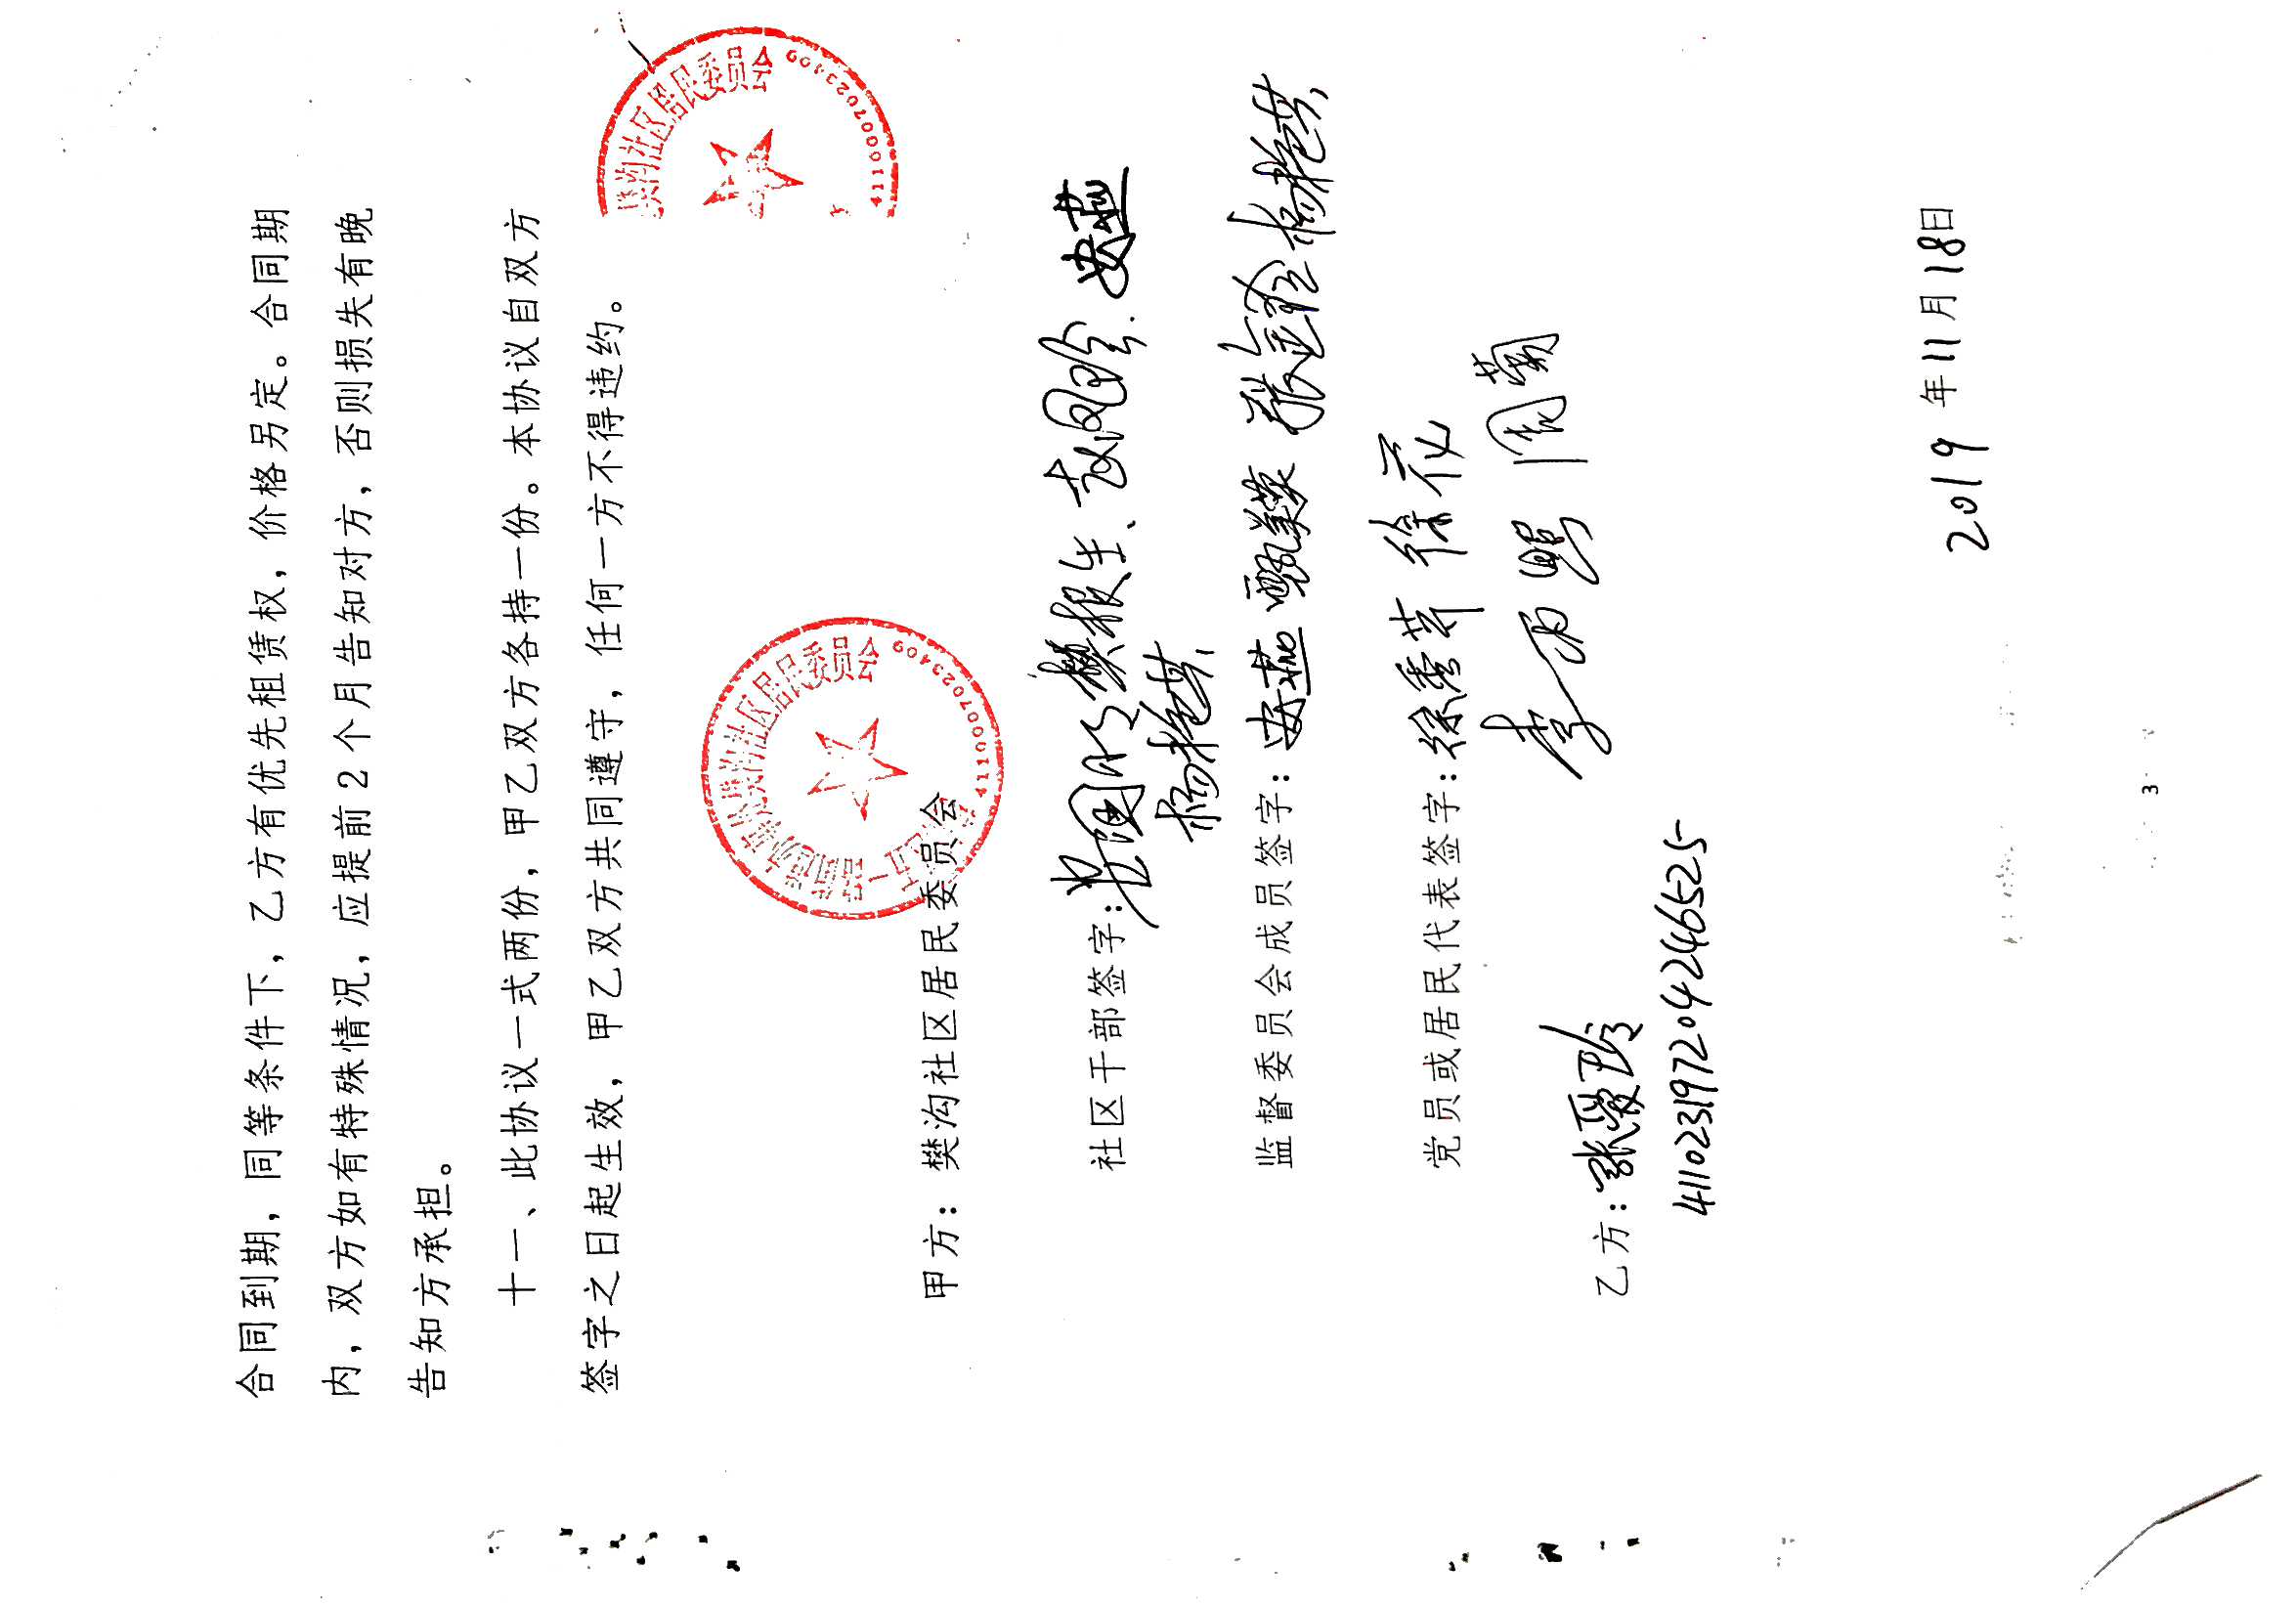 合同到期，同等条件下，乙方有优先租赁权，价格另定。合同期
内，双方如有特殊情况，应提前2个月告知对方，否则损失有晚
告知方承担。
十一、此协议一式两份，甲乙双方各持一份。本协议自双方
签字之日起生效，甲乙双方共同遵守，任何一方不得违约。
樊沟社区居民委员会
4110007023409
樊沟社区居民委员会
4110007023409
甲方：樊沟社区居民委员会
社区干部签字：樊报生、赵凤玲.安燕
杨艳共、
监督委员会成员签字：安燕 甄 张金 杨艳共、
党员或居民代表签字：徐秀芹 徐花
李 周菊
乙方：张爱玲
411023197204246525
2019年11月18日
3